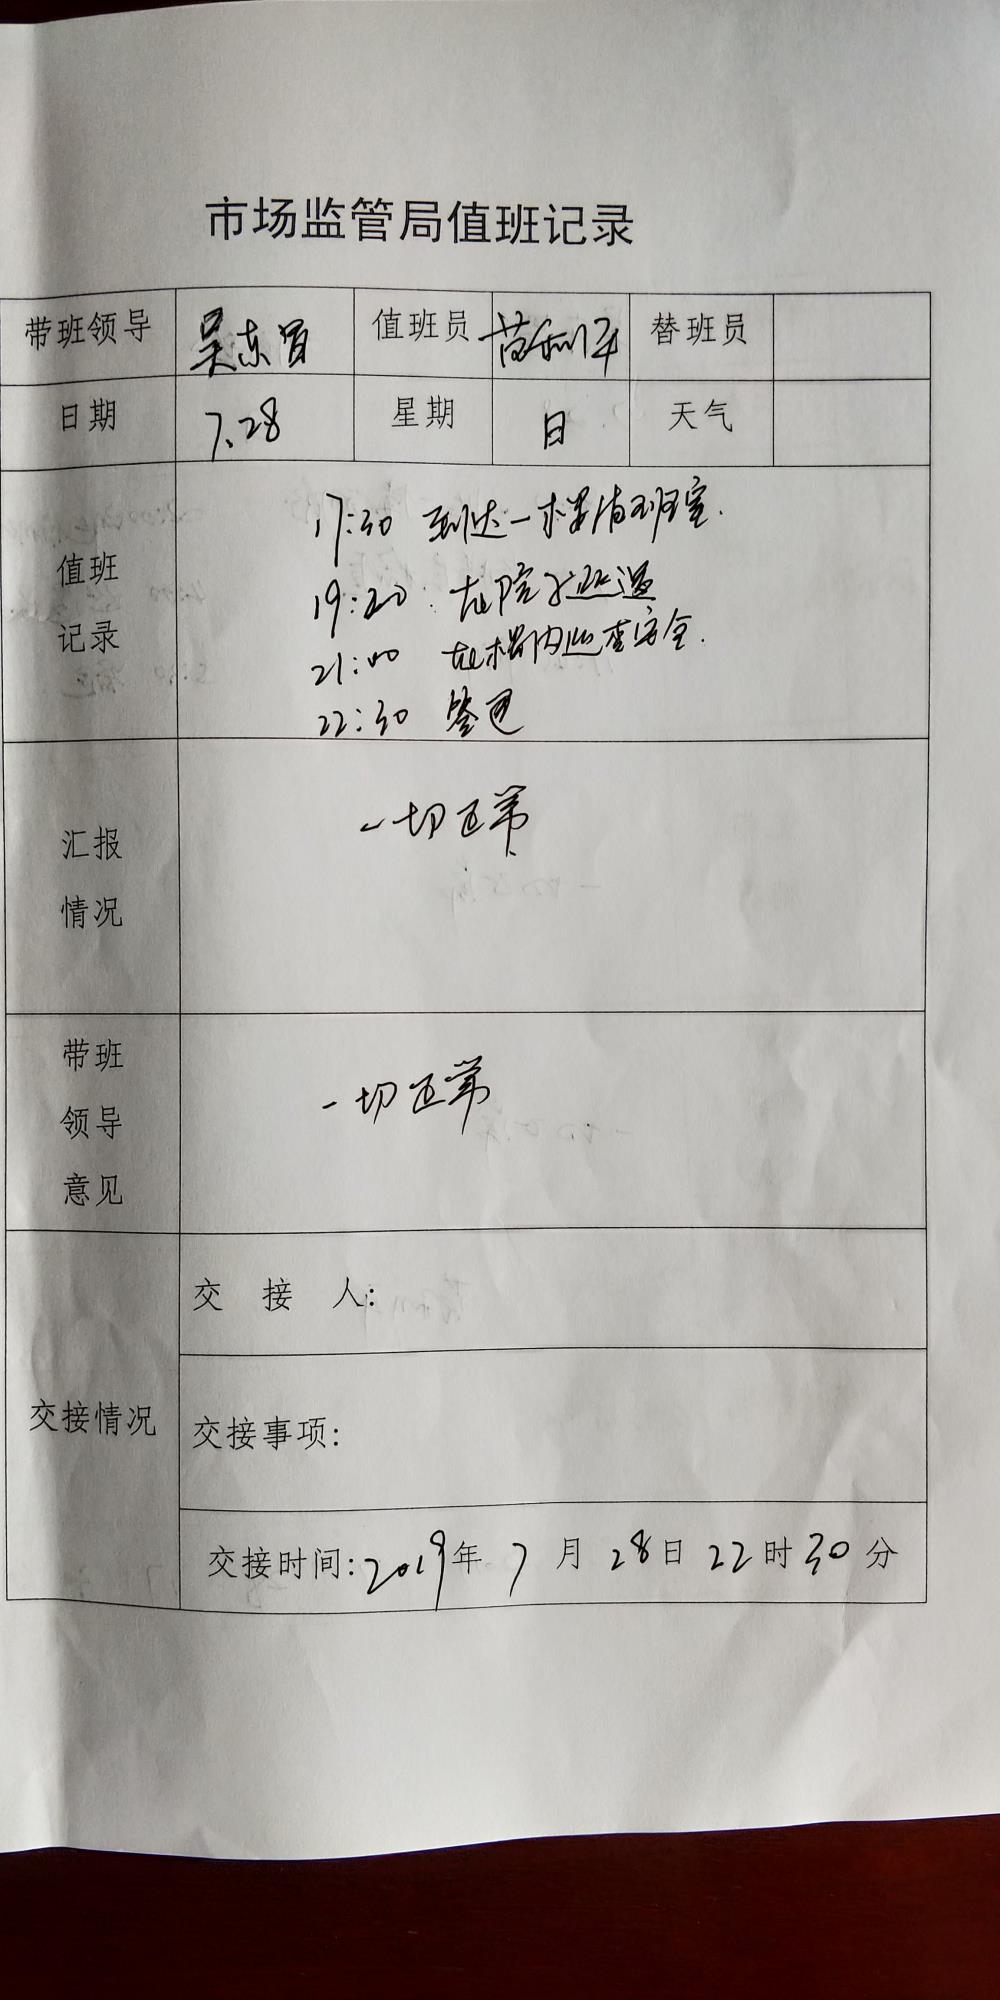 市场监管局值班记录
带班领导 吴东 值班员 苗利平 替班员
日期 7.28 星期 日 天气
值班记录
17:30 到达一楼值班室.
19:20 在院子巡逻
21:00 在楼内巡查安全.
22:30 签退
汇报情况
一切正常
带班领导意见
一切正常
交接情况
交 接 人:
交接事项:
交接时间:2019年 7 月 28日 22时30分